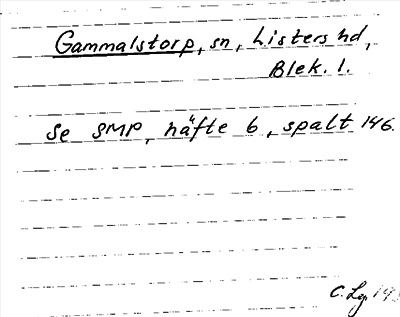 Gammalstorp, sn, Listers hd,
Blek. l.
Se SMP, häfte 6, spalt 146.
C. Lg.